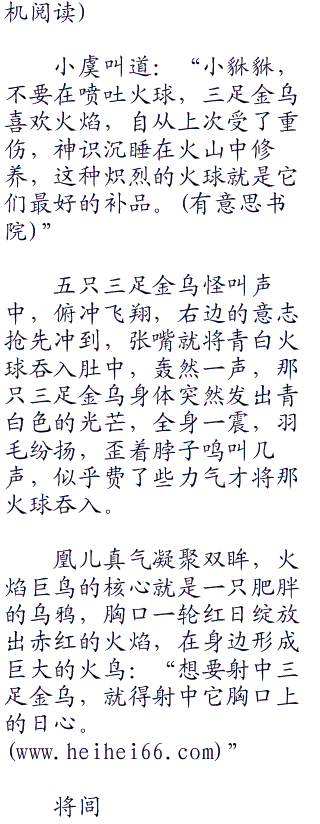 机阅读)
小虞叫道：“小貅貅，
不要在喷吐火球，三足金乌
喜欢火焰，自从上次受了重
伤，神识沉睡在火山中修
养，这种炽烈的火球就是它
们最好的补品。(有意思书
院)”
五只三足金乌怪叫声
中，俯冲飞翔，右边的意志
抢先冲到，张嘴就将青白火
球吞入肚中，轰然一声，那
只三足金乌身体突然发出青
白色的光芒，全身一震，羽
毛纷扬，歪着脖子鸣叫几
声，似乎费了些力气才将那
火球吞入。
凰儿真气凝聚双眸，火
焰巨鸟的核心就是一只肥胖
的乌鸦，胸口一轮红日绽放
出赤红的火焰，在身边形成
巨大的火鸟：“想要射中三
足金乌，就得射中它胸口上
的日心。
(www.heihei66.com)”
将闾